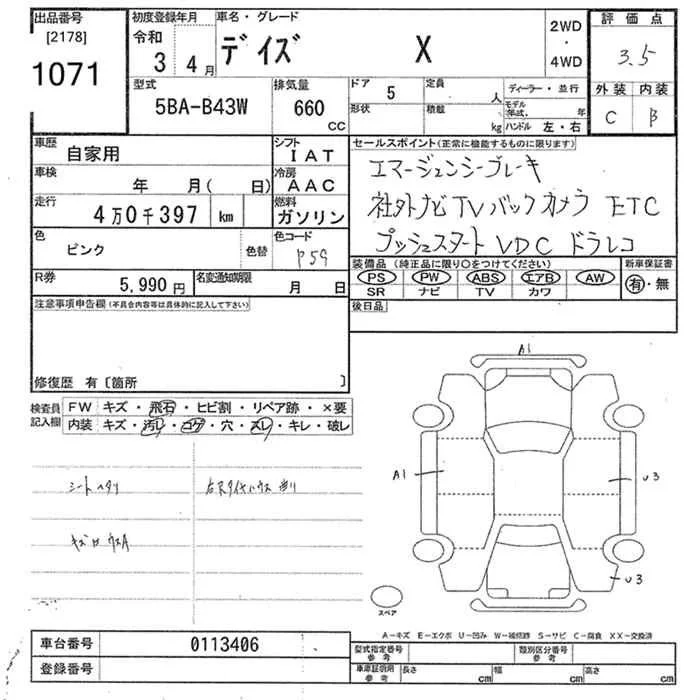 出品番号 初度登録年月 車名・グレード 2WD・4WD 評価点
[2178] 令和 3年 4月 デイズ X 3.5
1071
型式 排気量 ドア 5 定員 人 ディーラー・並行 外装 内装
5BA-B43W 660 CC 形状 積載 kg モデル年式 年 ハンドル 左・右 C B
車歴 自家用 シフト IAT セールスポイント(正常に機能するものに限ります)
車検 年 月( 日) 冷房 AAC エマージェンシーブレーキ
走行 4万0千397 km 燃料 ガソリン 社外ナビ TV バックカメラ ETC
色 ピンク 色替 色コード プッシュスタート VDC ドラレコ
R券 5,990円 名変通知期限 月 日 装備品(純正品に限り○をつけてください) 新車保証書
PS PW ABS エアB AW 有・無
SR ナビ TV カワ
注意事項申告欄(不具合内容等は具体的に記入して下さい) 後日品
修復歴 有〔箇所 〕
検査員記入欄 FW キズ・飛石・ヒビ割・リペア跡・×要
内装 キズ・汚レ・コゲ・穴・スレ・キレ・破レ
A1
A1
U3
U3
シートヘタリ
スペア
A-キズ E-エクボ U-凹み W-補修跡 S-サビ C-腐食 XX-交換済
車台番号 0113406 型式指定番号 参考 類別区分番号 参考
登録番号 車庫証明用 参考 長さ cm 幅 cm 高さ cm